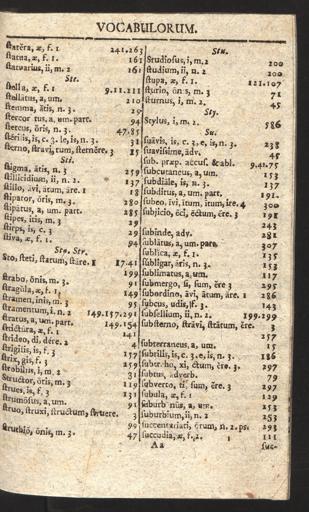 VOCABULORUM.
statēra, æ, f. 1 241.263
statua, æ, f. 1 161
statuarius, ii, m. 2 161
Ste.
stella, æ, f. 1 9.11.211
stellātus, a, um. 210
stemma, ătis, n. 3. 29
stercoratus, a, um. part. 94
stercus, ŏris, n. 3. 47.85
stĕrĭlis, is, c. 3. le, is, n. 3. 31
sterno, strāvi, tum, sternĕre. 3 15
Sti.
stigma, ătis, n. 3 259
stillicidium, ii, n. 2. 137
stillo, āvi, ātum, āre. 1 18
stipator, ōris, m. 3. 280
stipātus, a, um. part. 285
stipes, itis, m. 3 29
stirps, is, c. 3 29
stiva, æ, f. 1. 94
Sto. Str.
Sto, steti, statum, stāre. 1 17.41
199
strabo, ōnis, m. 3. 91
stragŭla, æ, f. 1. 149
stramen, inis, m. 3 95
stramentum, i, n. 2 149.157.291
stratus, a, um. part. 149.154
strictūra, æ, f. 1 141
strideo, di, dére. 2 4
strigilis, is, f. 3 157
strix, gis, f. 3 259
strobilus, i, m. 2 31
Structor, ōtis, m. 3 119
strues, is, f. 3 131
strumōsus, a, um. 91
struo, struxi, structum, struere. 3
99
struthĭŏ, ōnis, m. 3. 47
Stu.
Studiosus, i, m. 2 200
studium, ii, n. 2 200
stupa, æ, f. 1. 121.107
sturio, ōnis, m. 3 71
sturnus, i, m. 2. 45
Sty.
Stylus, i, m. 2. 586
Su.
suāvis, is, c. 3. e, is, n. 3. 238
suavissime, adv. 45
sub. præp. accus. & abl. 9.41.75
subcutaneus, a, um. 153
subdiāle, is, n. 3. 137
subditus, a, um. part. 191.
subeo, ivi, itum, ire. 4 300
subjicio, ĕci, ĕctum, ĕre. 3 191
243
subinde, adv. 281
sublātus, a, um. part. 307
sublĭca, æ, f. 1. 135
subligar, ātis, n. 3. 153
sublimatus, a, um. 117
submergo, si, sum, ĕre 3 295
subordino, āvi, ātum, āre. 1 286
subscus, udis, f. 3. 143
subsellium, ii, n. 2. 199.299
substerno, strāvi, strātum, ĕre. 3
257
subterraneus, a, um. 15
subtilis, is, c. 3. e, is, n. 3. 186
subtraho, xi, ctum, ĕre. 3. 297
subtus, adverb. 79
subverto, ti, sum, ĕre. 3 297
subula, æ, f. 1 129
suburbanus, a, um. 253
suburbium, ii, n. 2 253
succenturiati, ōrum, n. 2. ps. 293
succudia, æ, f. 2. 1 111
Aa suc-